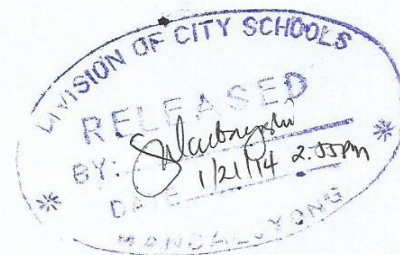 DIVISION OF CITY SCHOOLS
RELEASED
BY:
DATE 1/21/14 2:55pm
MANDALUYONG